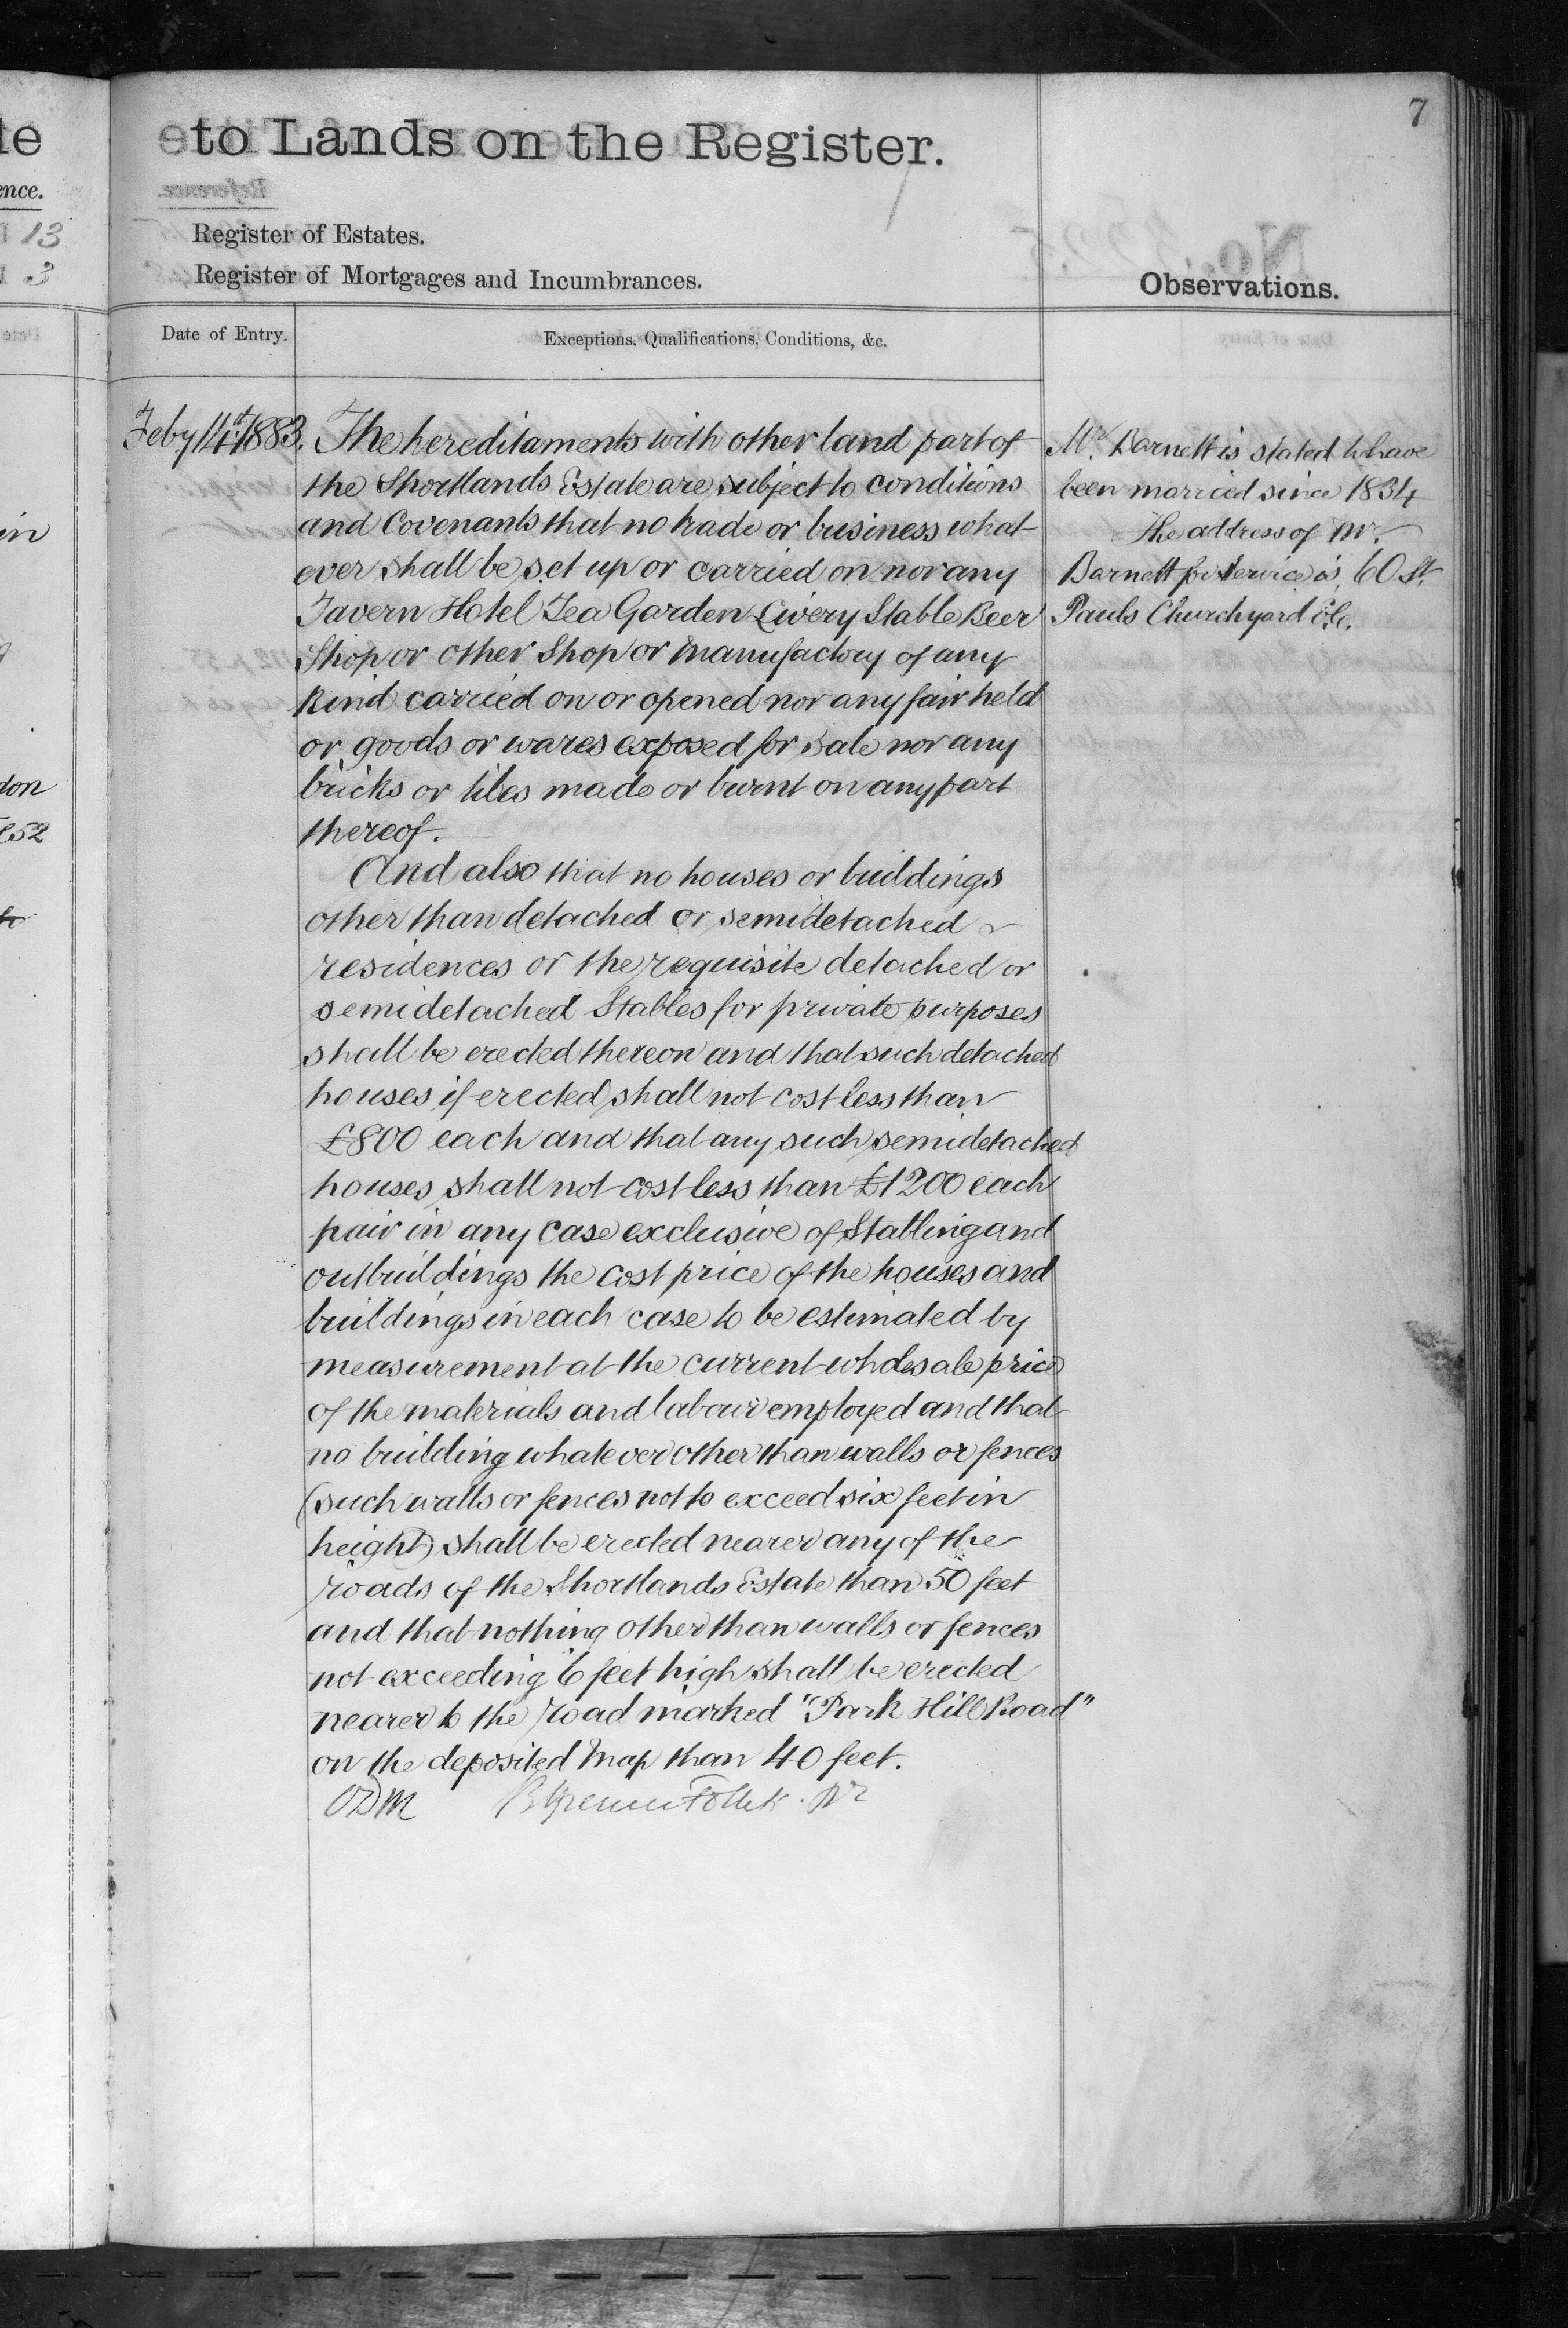 7
to Lands on the Register.
Register of Estates.
Register of Mortgages and Incumbrances.
Observations.
Date of Entry.
Exceptions, Qualifications, Conditions, &c.
Feby 14th 1883.
The hereditaments with other land part of
the Shortlands Estate are subject to conditions
and Covenants that no trade or business what
ever shall be set up or carried on nor any
Tavern Hotel Tea Garden Livery Stable Beer
Shop or other Shop or Manufactory of any
kind carried on or opened nor any fair held
or goods or wares exposed for Sale nor any
bricks or tiles made or burnt on any part
thereof.
And also that no houses or buildings
other than detached or semidetached
residences or the requisite detached or
semidetached Stables for private purposes
shall be erected thereon and that such detached
houses if erected shall not cost less than
£800 each and that any such semidetached
houses shall not cost less than £1200 each
pair in any case exclusive of Stabling and
outbuildings the cost price of the houses and
buildings in each case to be estimated by
measurement at the current wholesale price
of the materials and labour employed and that
no building whatever other than walls or fences
(such walls or fences not to exceed six feet in
height) shall be erected nearer any of the
roads of the Shortlands Estate than 50 feet
and that nothing other than walls or fences
not exceeding 6 feet high shall be erected
nearer to the road marked "Park Hill Road"
on the deposited Map than 40 feet.
Mr. Barnett is stated to have
been married since 1834
The address of Mr.
Barnett for Service is 60 St.
Pauls Churchyard
te
ence.
13
3
in
don